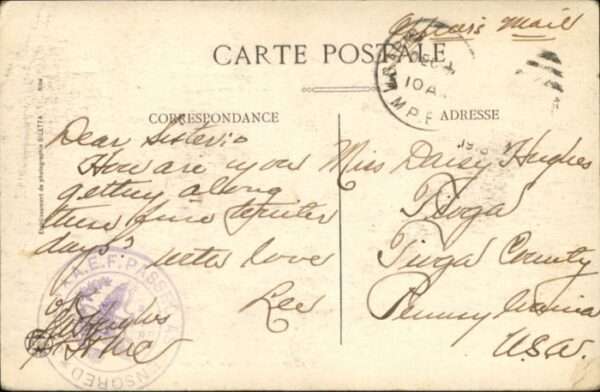 Officer's Mail
CARTE POSTALE
DEC
10 A
M.P.
CORRESPONDANCE
ADRESSE
Dear Sister:
How are you
getting along
these fine
days?
With love
Lee
Miss Daisy Hughes
Tioga
Tioga County
Pennsylvania
U.S.A.
A.E.F. PASSED
CENSORED
Hughes
GILETTA